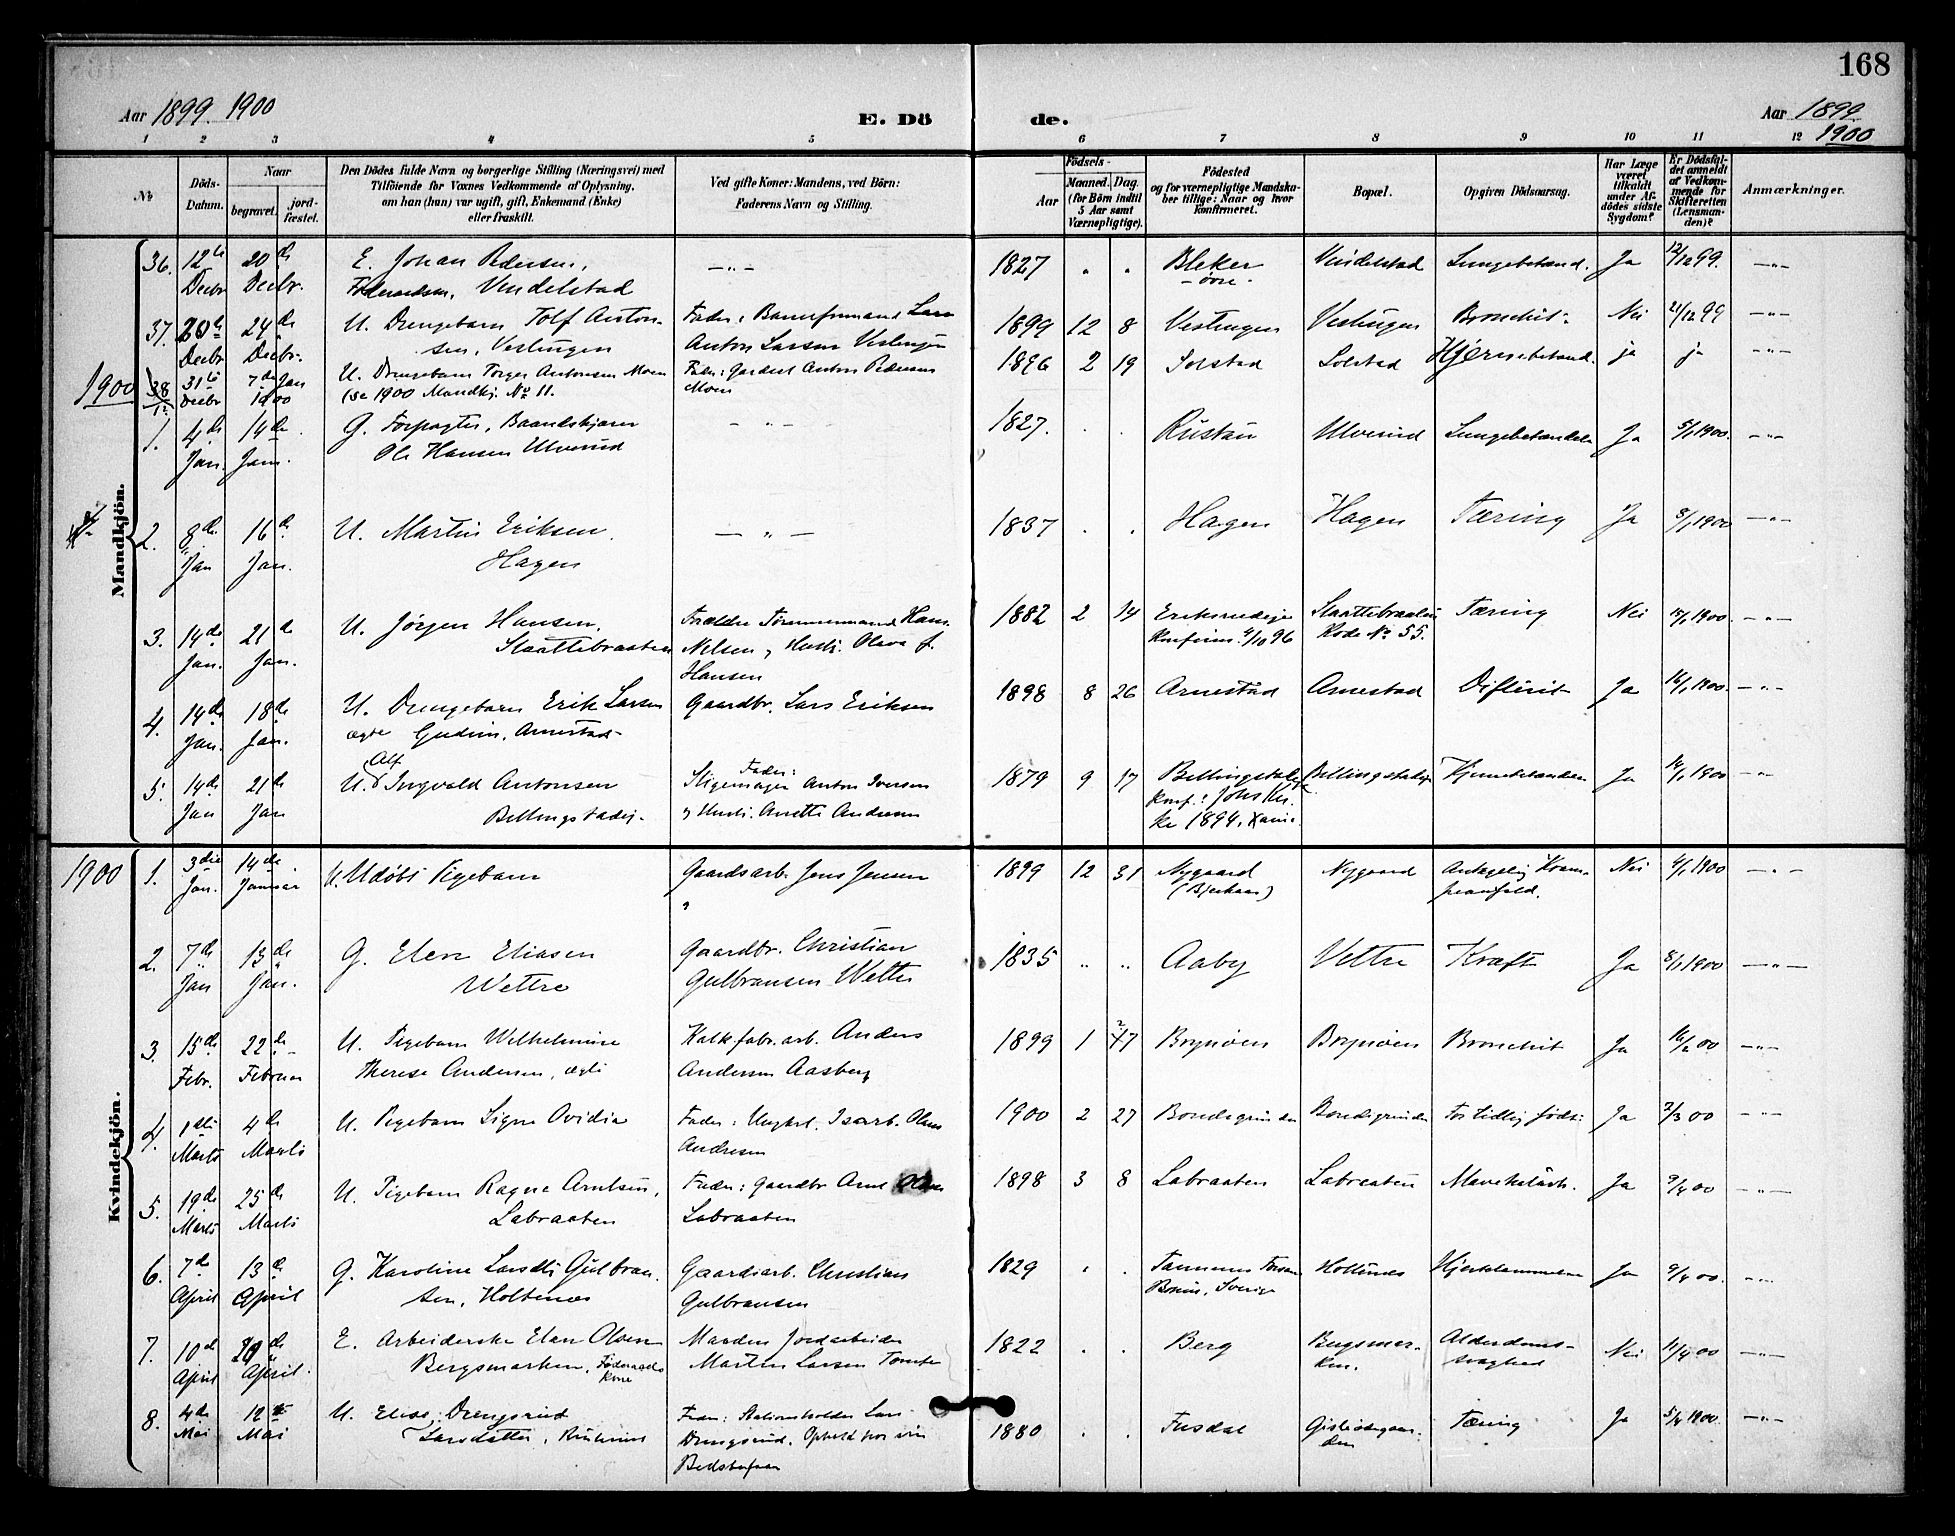 168
Aar 1899. 1900
E. Dö
de.
Aar 1899
1900
1 2 3 4 5 6 7 8 9 10 11 12
No
Döds-
Datum.
Naar
begravet.
jord-
fæstet.
Den Dödes fulde Navn og borgerlige Stilling (Næringsvei) med
Tilföiende for Voxnes Vedkommende af Oplysning,
om han (hun) var ugift, gift, Enkemand (Enke)
eller fraskilt.
Ved gifte Koner: Mandens, ved Börn:
Faderens Navn og Stilling.
Födsels-
Aar
Maaned. Dag.
(for Börn indtil
5 Aar samt
Værnepligtige).
Födested
og for værnepligtige Mandska-
ber tillige: Naar og hvor
konfirmeret.
Bopæl.
Opgiven Dödsaarsag.
Har Læge
været
tilkaldt
under Af-
dödes sidste
Sygdom?
Er Dödsfal-
det anmeldt
af Vedkom-
mende for
Skifteretten
(Lensman-
den)?
Anmærkninger.
Mandkjön.
36. 12te 20de E. Johan Pedersen, —"— 1827 " " Bleker Vendelstad Lungebetænd. Ja 12/12 99. —"—
Decbr Decbr. Vendelstad övre.
37. 20de 24de U. Drengebarn Tolf Anton- Fader, Lars 1899 12 8 Vestengen Vestengen Bronchit Nei 21/12 99 —"—
Decbr Decbr. sen, Vestengen Anton Larsen Vestengen
1900 38 31te 7de Jan U. Drengebarn Torger Antonsen Moen Fader: Gardist Anton Pedersen 1896 2 19 Solstad Solstad Hjernebetænd. ja ja —"—
Decbr 1900 (se 1900 Mandkj. No 11. Moen
1. 4de 14de G. Forpagter, Baandskjærer — " — 1827. . . Rustan Ulverud Lungebetændelse Ja 5/1 1900. —"—
Jan. Jan. Ole Hansen Ulverud
2. 8de 16de U. Martin Eriksen — " — 1837 . . Hagen Hagen Tæring Ja 8/1 1900 —"—
Jan Jan. Hagen
3. 14de 21de U. Jörgen Hansen, Forældre Hans 1882 2 14 Tæring Nei 15/1 1900. —"—
Jan. Jan. Slaattebraaten Nelsen, Hustr. Olava f. konfirm. 4/10 96 Rode No 55.
Hansen
4. 14de 18de U. Drengebarn Erik Larsen Gaardbr. Lars Eriksen 1898 8 26 Arnestad Arnestad Difterit Ja 16/1 1900. —"—
Jan. Jan. ægte Arnestad
5. 14de 21de U. Alf Ingvald Antonsen Fader: Stigemager Anton Iversen 1879 9 17 Hjernebetændelse Ja 16/1 1900 —"—
Jan Jan Billingstadej. Hustr. Anette Andersen konf.: 1894.
Kvindekjön.
1900 1. 3die 14de U. Udöbt Pigebarn Gaardsarb. Jens Jensen 1899 12 31 Nygaard Nygaard Antagelig Kram- Nei 4/1 1900 —"—
Jan. Januar " peanfald.
2. 7de 13de G. Elen Eliasen Gaardbr. Christian 1835 " " Aaby Vettre Kræft Ja 8/1 1900 —"—
Jan Jan. Wettre Gulbransen Wettre
3. 15de 22de U. Pigebarn Wilhelmine Kalkfabr. arb. Anders 1899 1 Brynöen Brynöen Bronchit Ja 16/2 00 —"—
Febr. Februar Therese Andersen, ægte Andersen Aasberg
4. 1ste 4de U. Pigebarn Signe Ovidia Fader: Ungkarl, Isarb. Olaus 1900 2 27 Bondegrunden Bondegrunden For tidlig födt Ja 2/3 00 —"—
Marts Marts Andresen
5. 19de 25de U. Pigebarn Ragna Arntsen, Fader: Gaardbr Arnt Olsen 1898 3 8 Labraaten Labraaten Ja 9/4 00 —"—
Marts Marts Labraaten Labraaten
6. 7de 13de G. Karoline Larsdtr Gulbran- Gaardsarb. Christian 1829 . . Tannum Holtenes Ja 9/4 00. —"—
April April sen, Holtenes Gulbransen Sverige
7. 10de 20de E. Arbeiderske Elen Olsen Manden Jordarbeider 1822 . . Berg Bergsmar- Alderdoms- Nei 11/4 00 —"—
April April. Bergsmarken, Föderaads kone Marten Larsen Tomter ken. svaghed
8. 4de 12te U. Elise Drengsrud Fader: Stationsholder Lars 1880 . . Fusdal Tæring Ja 5/5 1900. —"—
Mai Mai Larsdatter, Drengsrud. Ophold hos sin
Bedstefar